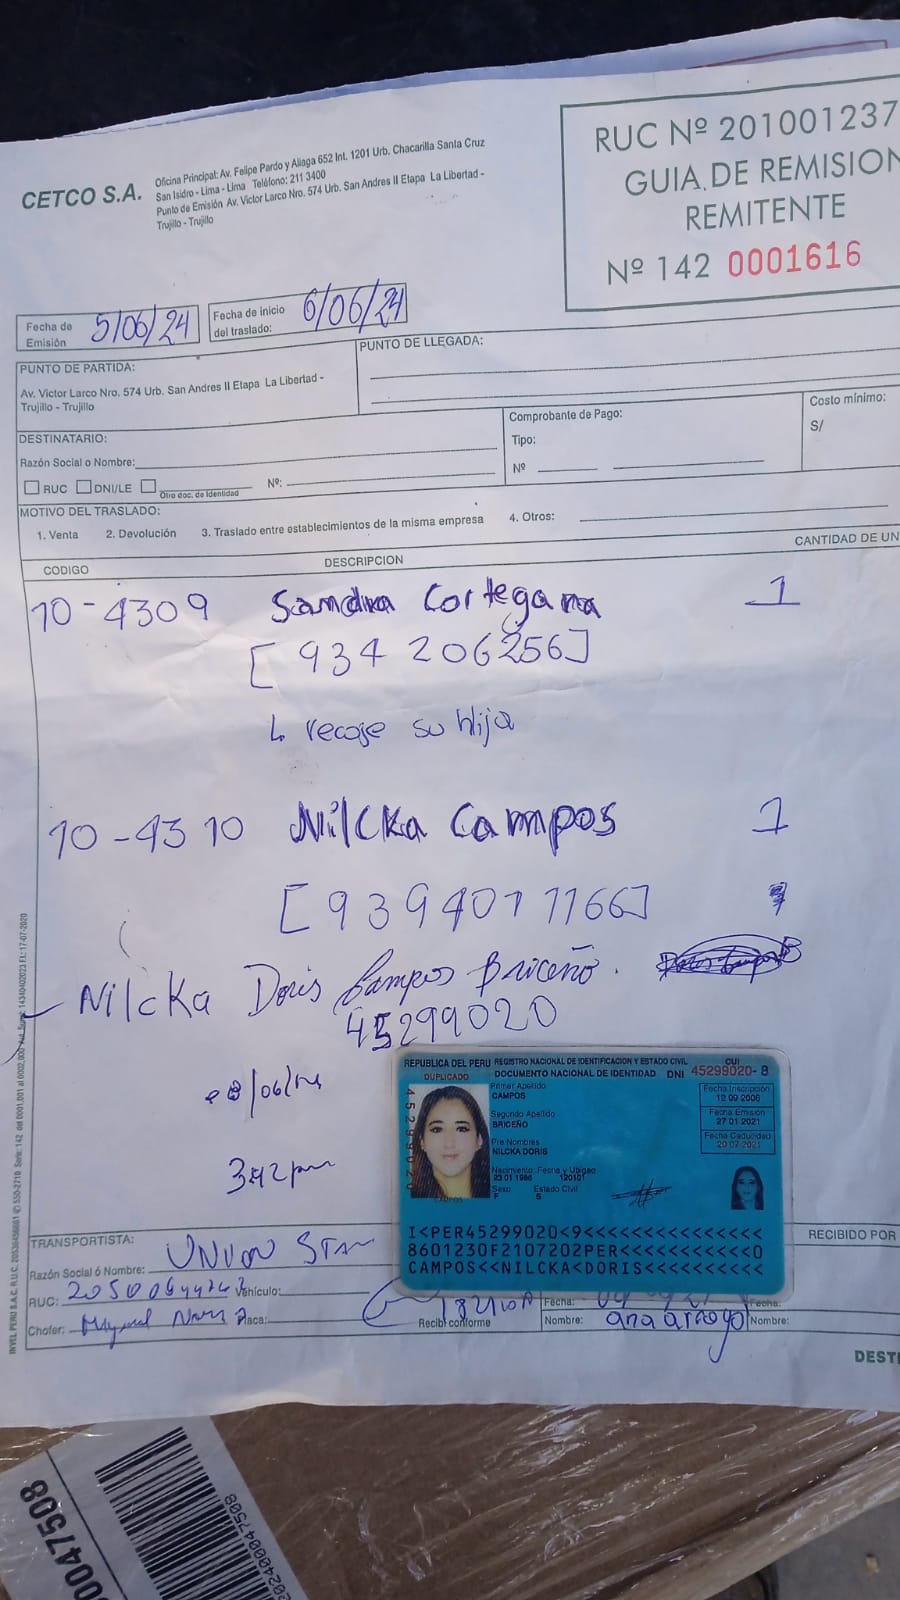 CETCO S.A.
Oficina Principal: Av. Felipe Pardo y Aliaga 652 Int. 1201 Urb. Chacarilla Santa Cruz
San Isidro - Lima - Lima Teléfono: 211 3400
Punto de Emisión Av. Victor Larco Nro. 574 Urb. San Andres II Etapa La Libertad -
Trujillo - Trujillo
RUC Nº 201001237
GUIA DE REMISION
REMITENTE
Nº 142 0001616
Fecha de Emisión 5/06/24
Fecha de inicio del traslado: 6/06/24
PUNTO DE PARTIDA:
Av. Victor Larco Nro. 574 Urb. San Andres II Etapa La Libertad -
Trujillo - Trujillo
PUNTO DE LLEGADA:
DESTINATARIO:
Razón Social o Nombre:
RUC DNI/LE Otro doc. de Identidad Nº:
Comprobante de Pago:
Tipo:
Nº
Costo mínimo:
S/
MOTIVO DEL TRASLADO:
1. Venta 2. Devolución 3. Traslado entre establecimientos de la misma empresa 4. Otros:
CODIGO DESCRIPCION CANTIDAD DE UN
10-4309 Sandra Cortegana 1
[934 206256]
recoje su hija
10-4310 Nilcka Campos 1
Nilcka Doris Campos Briceño.
45299020
REPUBLICA DEL PERU REGISTRO NACIONAL DE IDENTIFICACION Y ESTADO CIVIL CUI
DUPLICADO DOCUMENTO NACIONAL DE IDENTIDAD DNI 45299020-8
Primer Apellido
CAMPOS
Segundo Apellido
BRICEÑO
Pre Nombres
NILCKA DORIS
Nacimiento: Fecha y Ubigeo
23 01 1986 120101
Sexo Estado Civil
F S
Fecha Inscripción
12 09 2006
Fecha Emisión
27 01 2021
Fecha Caducidad
20 07 2021
45299020
I<PER45299020<9<<<<<<<<<<<<<<<
8601230F2107202PER<<<<<<<<<<<0
CAMPOS<<NILCKA<DORIS<<<<<<<<<<
TRANSPORTISTA:
Razón Social ó Nombre: UNION STAR
RUC: Vehículo:
Chofer: Placa:
Recibí conforme
Fecha:
Nombre: ana arroyo
RECIBIDO POR
Fecha:
Nombre:
DESTI
0047508